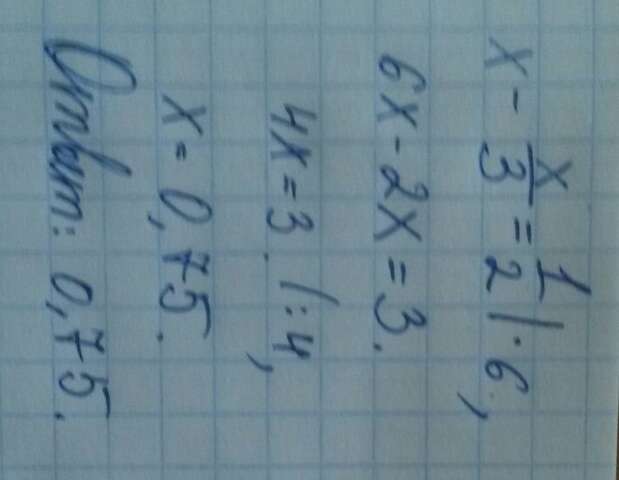 x - x/3 = 1/2 | · 6,
6x - 2x = 3.
4x = 3. | : 4,
x = 0,75.
Ответ: 0,75.